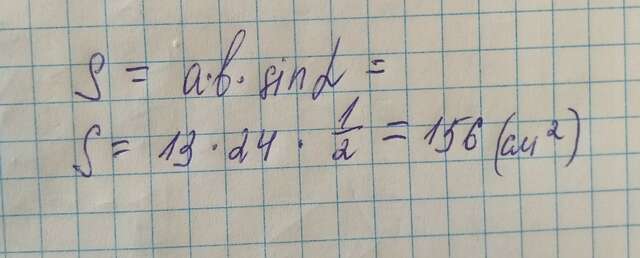 S = a·b· sin α =
S = 13 · 24 · 1/2 = 156 (см²)